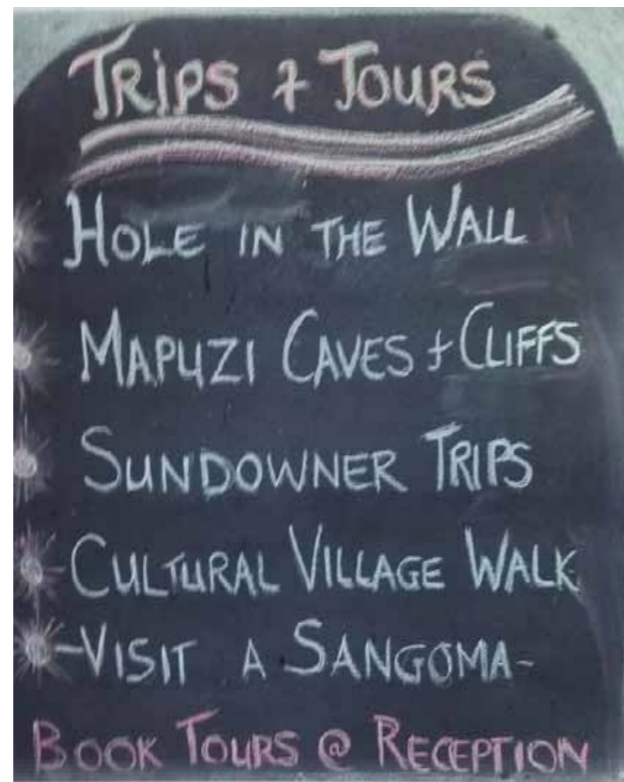 TRIPS & TOURS
HOLE IN THE WALL
MAPUZI CAVES & CLIFFS
SUNDOWNER TRIPS
CULTURAL VILLAGE WALK
-VISIT A SANGOMA-
BOOK TOURS @ RECEPTION